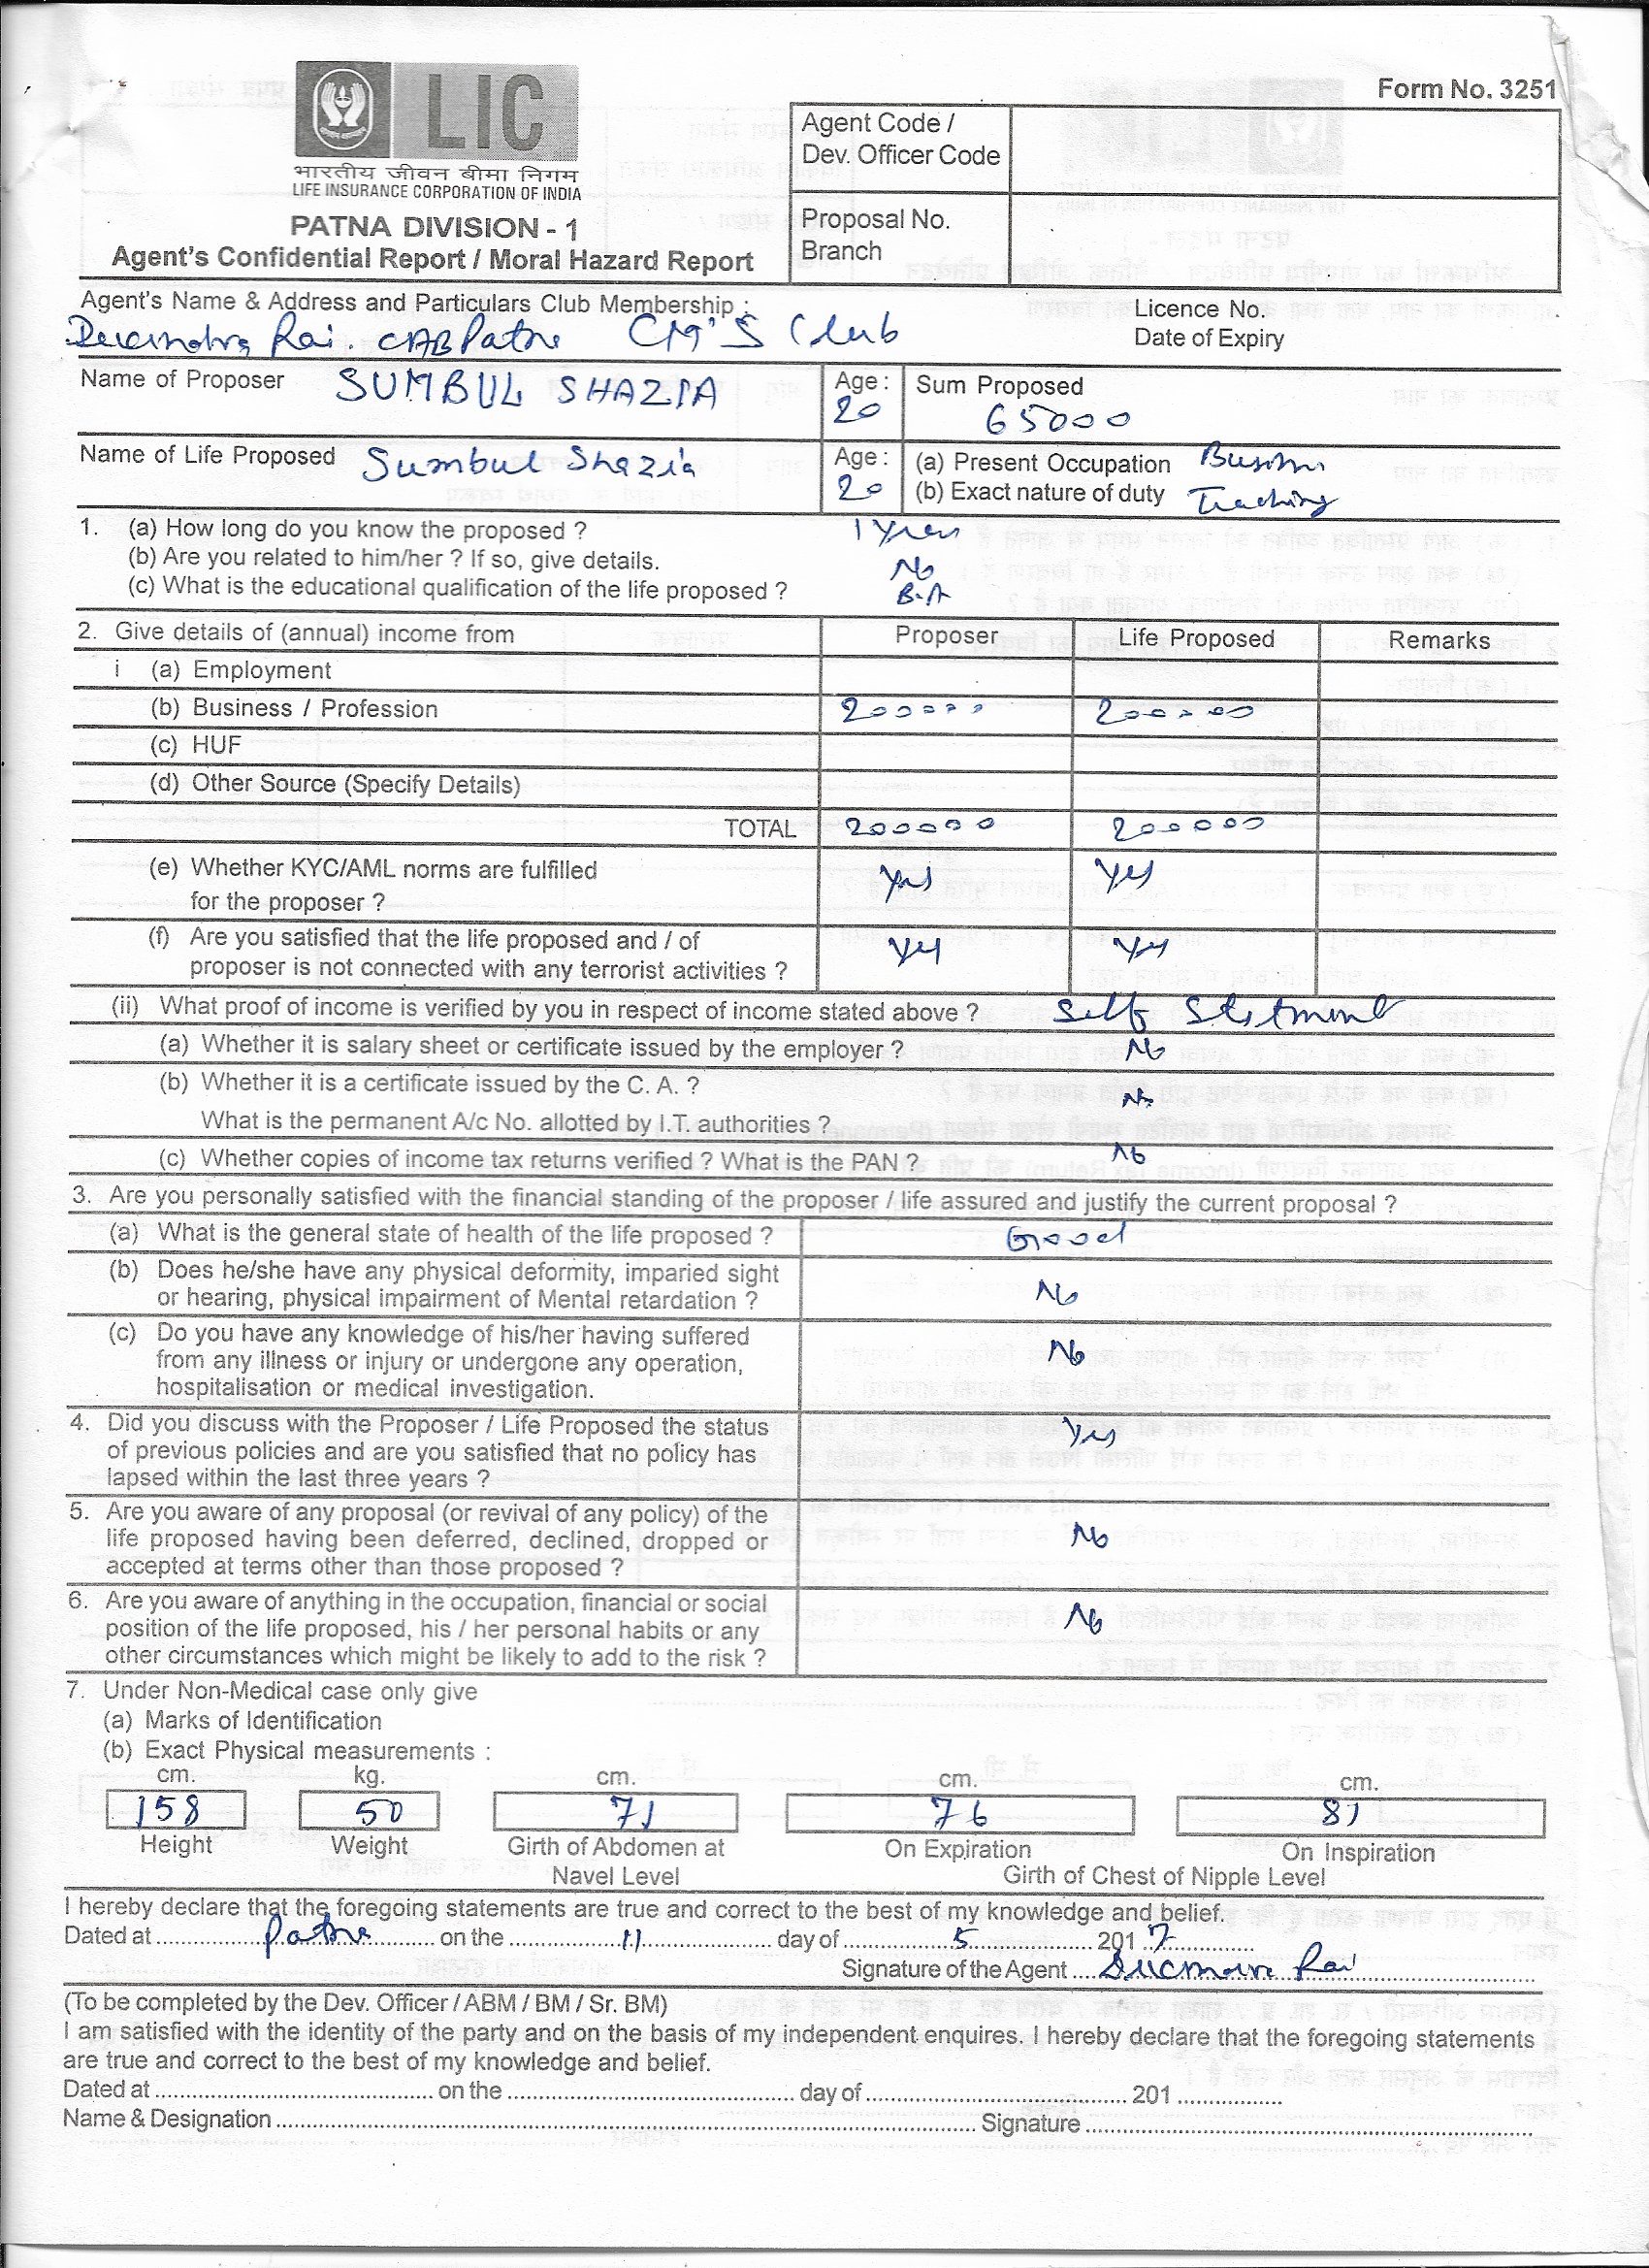 Form No. 3251
LIC
भारतीय जीवन बीमा निगम
LIFE INSURANCE CORPORATION OF INDIA
PATNA DIVISION - 1
Agent's Confidential Report / Moral Hazard Report
Agent Code /
Dev. Officer Code
Proposal No.
Branch
Agent's Name & Address and Particulars Club Membership :
Licence No.
Date of Expiry
Rai. CAB Patna CM'S Club
Name of Proposer SUMBUL SHAZIA Age : 20 Sum Proposed 65000
Name of Life Proposed Sumbul Shazia Age : 20 (a) Present Occupation
(b) Exact nature of duty Teaching
1. (a) How long do you know the proposed ? 1 Year
(b) Are you related to him/her ? If so, give details. No
(c) What is the educational qualification of the life proposed ? B.A
2. Give details of (annual) income from Proposer Life Proposed Remarks
i (a) Employment
(b) Business / Profession 200000 200000
(c) HUF
(d) Other Source (Specify Details)
TOTAL 200000 200000
(e) Whether KYC/AML norms are fulfilled
for the proposer ? Yes Yes
(f) Are you satisfied that the life proposed and / of
proposer is not connected with any terrorist activities ? Yes Yes
(ii) What proof of income is verified by you in respect of income stated above ? Self Statment
(a) Whether it is salary sheet or certificate issued by the employer ? No
(b) Whether it is a certificate issued by the C. A. ? No
What is the permanent A/c No. allotted by I.T. authorities ?
(c) Whether copies of income tax returns verified ? What is the PAN ? No
3. Are you personally satisfied with the financial standing of the proposer / life assured and justify the current proposal ?
(a) What is the general state of health of the life proposed ? Good
(b) Does he/she have any physical deformity, imparied sight
or hearing, physical impairment of Mental retardation ? No
(c) Do you have any knowledge of his/her having suffered
from any illness or injury or undergone any operation, No
hospitalisation or medical investigation.
4. Did you discuss with the Proposer / Life Proposed the status Yes
of previous policies and are you satisfied that no policy has
lapsed within the last three years ?
5. Are you aware of any proposal (or revival of any policy) of the
life proposed having been deferred, declined, dropped or No
accepted at terms other than those proposed ?
6. Are you aware of anything in the occupation, financial or social
position of the life proposed, his / her personal habits or any No
other circumstances which might be likely to add to the risk ?
7. Under Non-Medical case only give
(a) Marks of Identification
(b) Exact Physical measurements :
cm. kg. cm. cm. cm.
158 50 71 76 81
Height Weight Girth of Abdomen at On Expiration On Inspiration
Navel Level Girth of Chest of Nipple Level
I hereby declare that the foregoing statements are true and correct to the best of my knowledge and belief.
Dated at Patna on the 11 day of 5 2017
Signature of the Agent Rai
(To be completed by the Dev. Officer / ABM / BM / Sr. BM)
I am satisfied with the identity of the party and on the basis of my independent enquires. I hereby declare that the foregoing statements
are true and correct to the best of my knowledge and belief.
Dated at on the day of 201
Name & Designation Signature